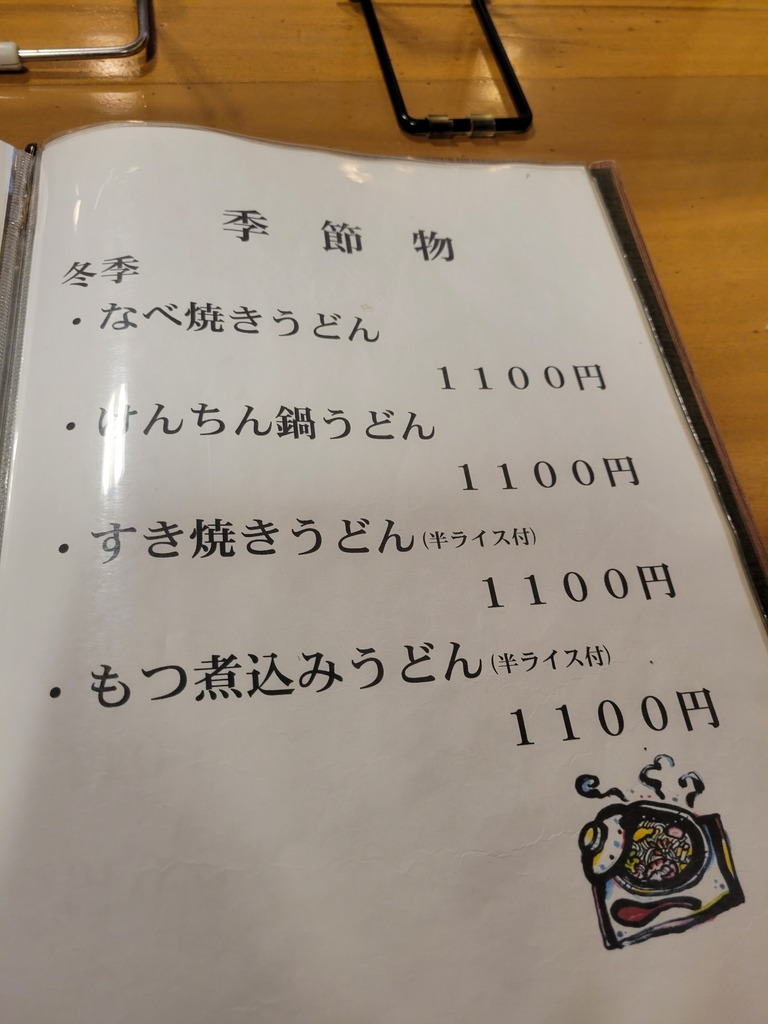 季節物
冬季
・なべ焼きうどん
１１００円
・けんちん鍋うどん
１１００円
・すき焼きうどん(半ライス付)
１１００円
・もつ煮込みうどん(半ライス付)
１１００円